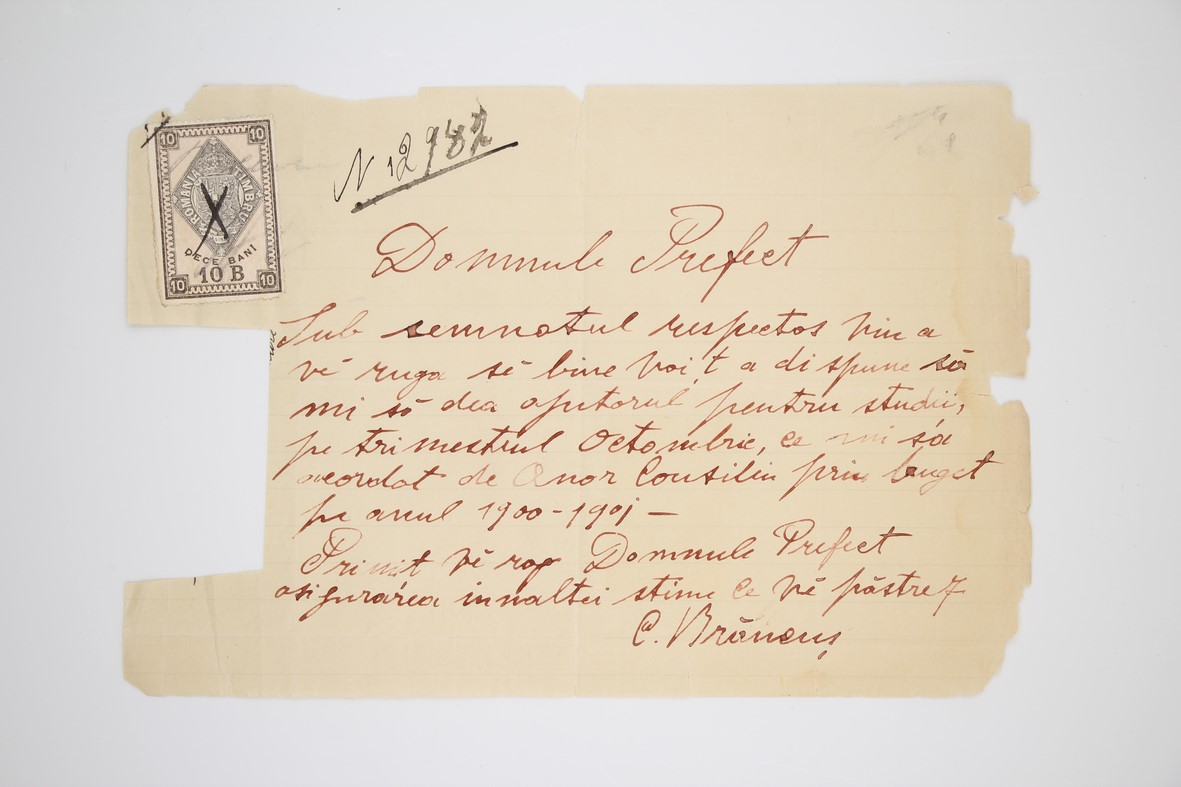 10 10
ROMANIA TIMBRU
DECE BANI
10 B
10 10
N 12987
Domnule Prefect
Sub semnatul respectos viu a
vĕ ruga sĕ bine voiţ a dispune să
mi să dea ajutorul pentru studii,
pe trimestrul Octombrie, ce mi s'a
acordat de Onor Consiliu prin buget
pe anul 1900-1901 —
Primit vĕ rog Domnule Prefect
asigurarea innaltei stime ce vĕ păstrez
C. Brâncuş